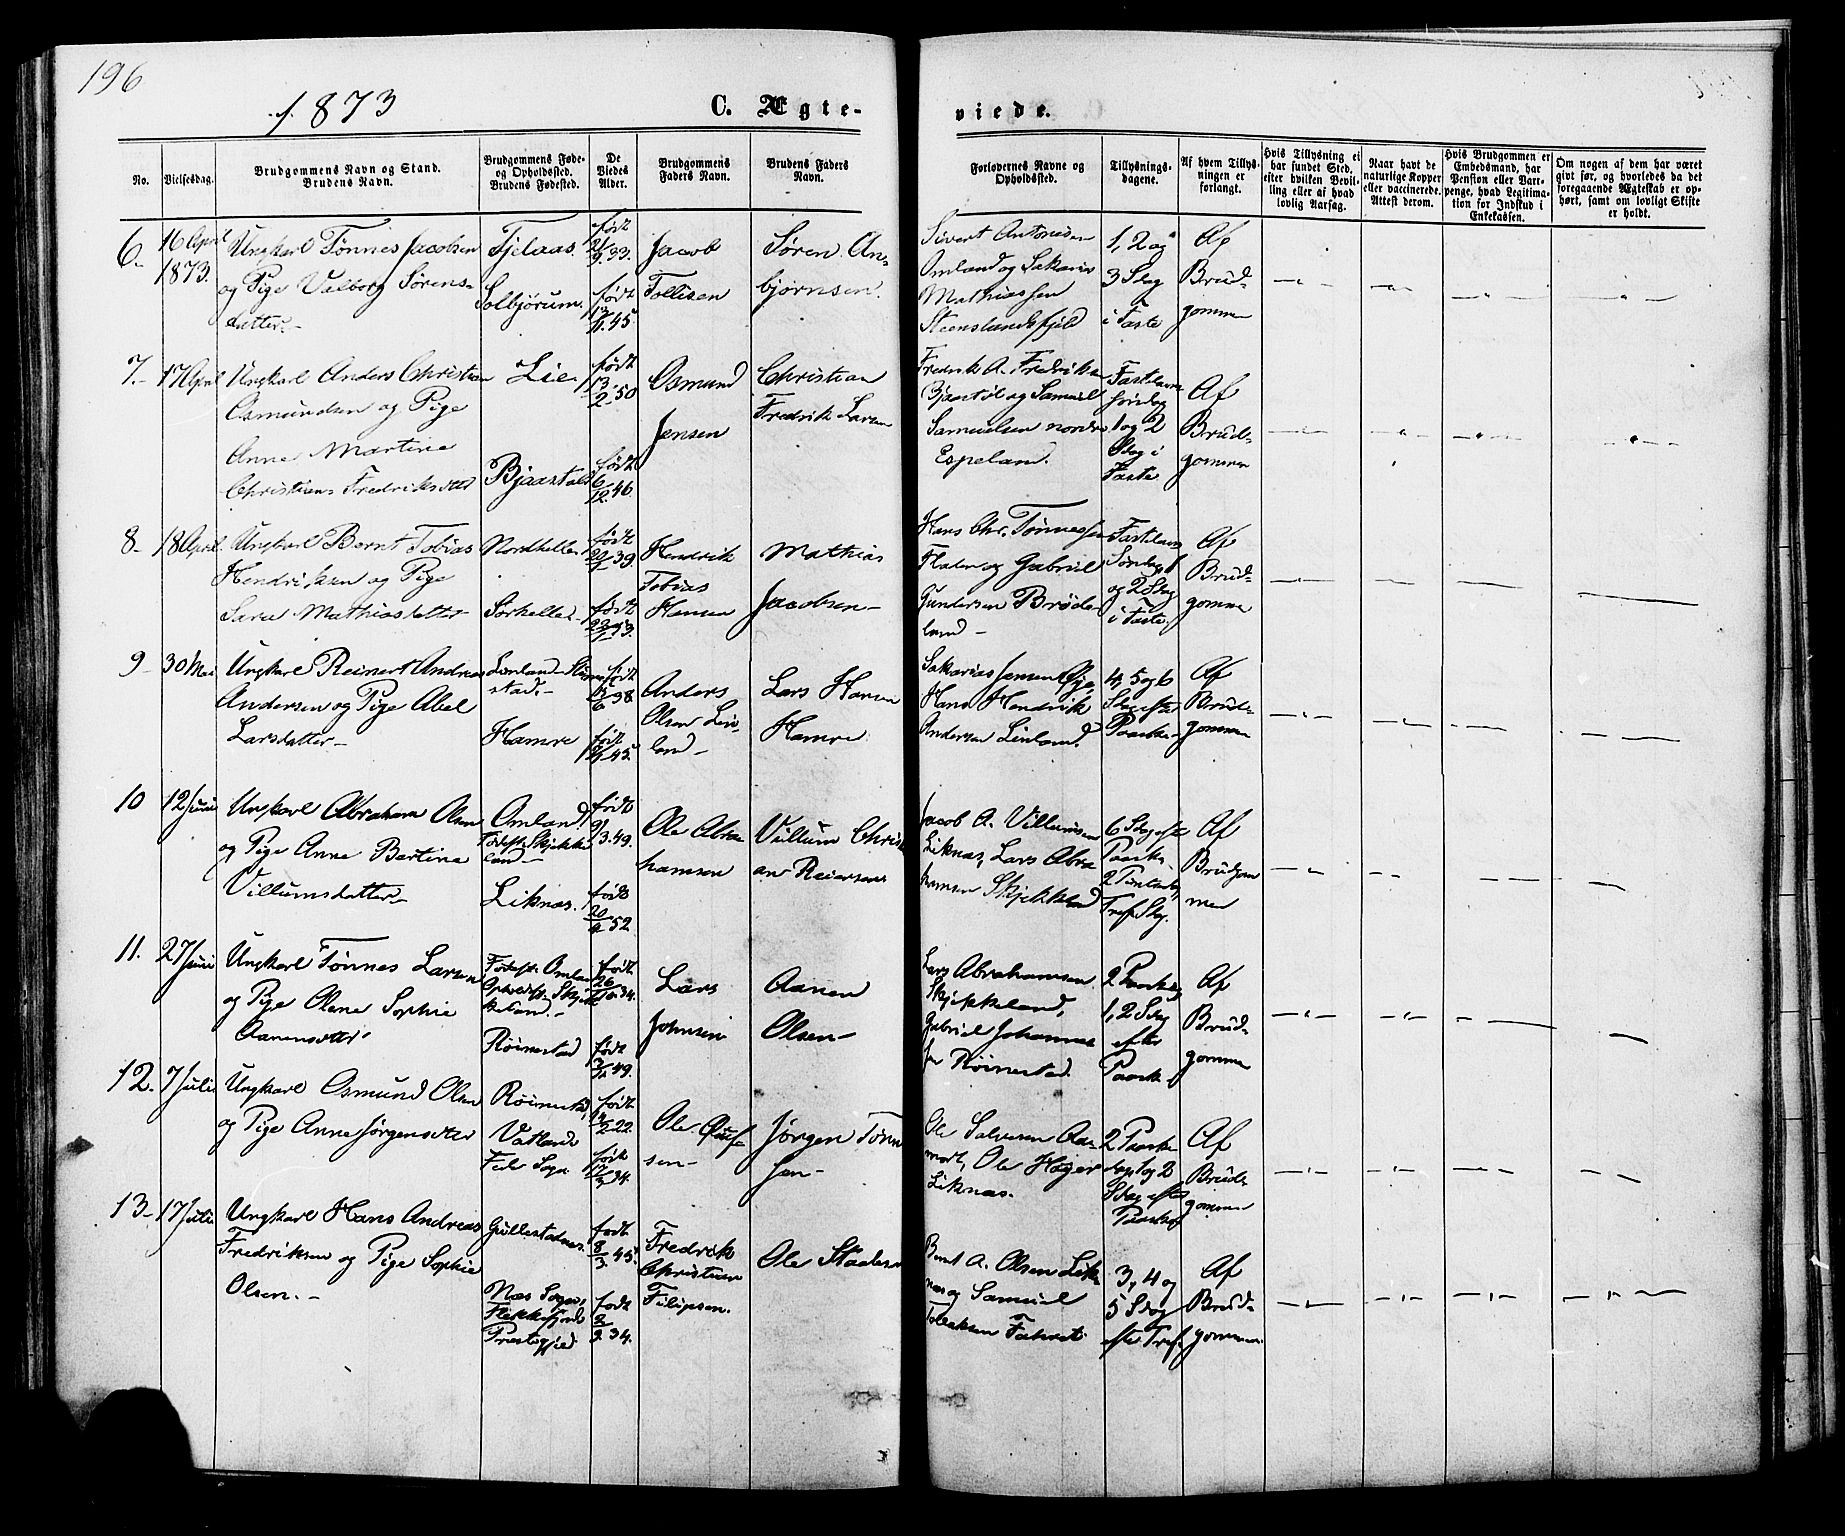 196
1873
C. Ægte-
viede.
No.
Vielsesdag.
Brudgommens Navn og Stand.
Brudens Navn.
Brudgommens Føde-
og Opholdssted.
Brudens Fødested.
De
Viedes
Alder.
Brudgommens
Faders Navn.
Brudens Faders
Navn.
Forlovernes Navne og
Opholdssted.
Tillysnings-
dagene.
Af hvem Tillys-
ningen er
forlangt.
Hvis Tillysning ei
har fundet Sted,
efter hvilken Bevil-
ling eller af hvad
lovlig Aarsag.
Naar havt de
naturlige Kopper
eller vaccinerede.
Attest derom.
Hvis Brudgommen er
Embedsmand, har
Pension eller Vart-
penge, hvad Legitima-
tion for Indskud i
Enkekassen.
Om nogen af dem har været
gift før, og hvorledes da det
foregaaende Ægteskab er op-
hørt, samt om lovligt Skifte
er holdt.
6.
16 April
1873.
Ungkarl Tønnes Jacobsen
og Pige Valborg Sørens-
datter.
Fjelaas
Solbjørum.
født
21/9.33.
født
/11.45
Jacob
Tollisen
Søren An-
bjørnsen.
Sivert Antonisen
Omland og Sakarias
Mathiassen
Steenslandsfjeld
1, 2 og
3 Sdag
i Faste
Af
Brud-
gommen
7.
17 April
Ungkarl Anders Christian
Osmundsen og Pige
Anne Martine
Christians Fredriksdtter
Lie
Bjaastøl
født
13/2.50
født
6/12.46.
Osmund
Jensen
Christian
Fredrik Larsen
Fredrik A. Fredriksen
Bjaastøl og Samuel
Samuelsen nordre
Espeland.
Fastelavns
søndag
1 og 2
Sdag i
Faste
Af
Brud-
gommen
8
18 April
Ungkarl Bernt Tobias
Hendriksen og Pige
Sara Mathiasdatter
Nordhelle
Sørhelle
født
39
født
53.
Hendrik
Tobias
Hansen
Mathias
Jacobsen
Hans Chr. Tønnessen
og Gabriel
Gundersen Brøde-
land
Fastelavns
Søndag 1
og 2 Sdag
i Faste
Af
Brud-
gomme
9
30 Mai
Ungkarl Reinert Andreas
Andersen og Pige Abel
Larsdatter
stad.
Hamre
født
38
født
45.
Anders
Olsen Lin-
land
Lars Hansen
Hamre
Sakarias Jensen Øye,
Hans Hendrik
Andersen Linland.
4, 5 og 6
Sdag efter
Paaske
Af
Brud-
gommen
10
12 Juni
Ungkarl Abraham Olsen
og Pige Anne Bartine
Villumsdatter
Omland
Fødest. Skjekke-
land
Liknæs.
født
9/3.49.
født
20/4 52
Ole Abra-
hamsen
Villum Christi-
an Reiersen
Jacob A. Villumsen
Liknæs, Lars Abra-
hamsen Skjekkeland
6 Sdag efter
Paaske
2 Pintsedag
Tref. Sdg.
Af
Brudgom
men
11.
27 Juni
Ungkarl Tønnes Larsen
og Pige Olene Sophie
Aanensdtter
Fødest. Omland
Opholdst. Skjek-
keland.
Røinestad
født
26/10.34.
født
49.
Lars
Johnsen
Aanen
Olsen
Lars Abrahamsen
Skjekkeland,
Gabriel Johannes-
sen Røinestad.
2 Paaskedg
1, 2 Sdag
efter
Paaske
Af
Brud-
gomme
12.
7 Juli
Ungkarl Osmund Olsen
og Pige Anne Jørgensdtter
Røinestad,
Vatland
Fede Sogn
født
22.
født
17/3 34.
Ole
sen
Jørgen Tønne-
sen
Ole Salvesen Aa-
modt, Ole Høyer
Liknæs.
2 Paaske
dag 1 og 2
Sdag efter
Paaske
Af
Brud-
gommen
13
17 Juli
Ungkarl Hans Andreas
Fredriksen og Pige Sophie
Olsen.
Gullestadnes.
Næs Sogn,
Flekkefjords
Prestegjeld
født
8/3.45.
født
2/2 34.
Fredrik
Christian
Filipsen.
Ole
Bernt A. Olsen Lik-
næs og Samuel
Tollaksen
3, 4 og
5 Sdag
efter Tref.
Af
Brud-
gommen.